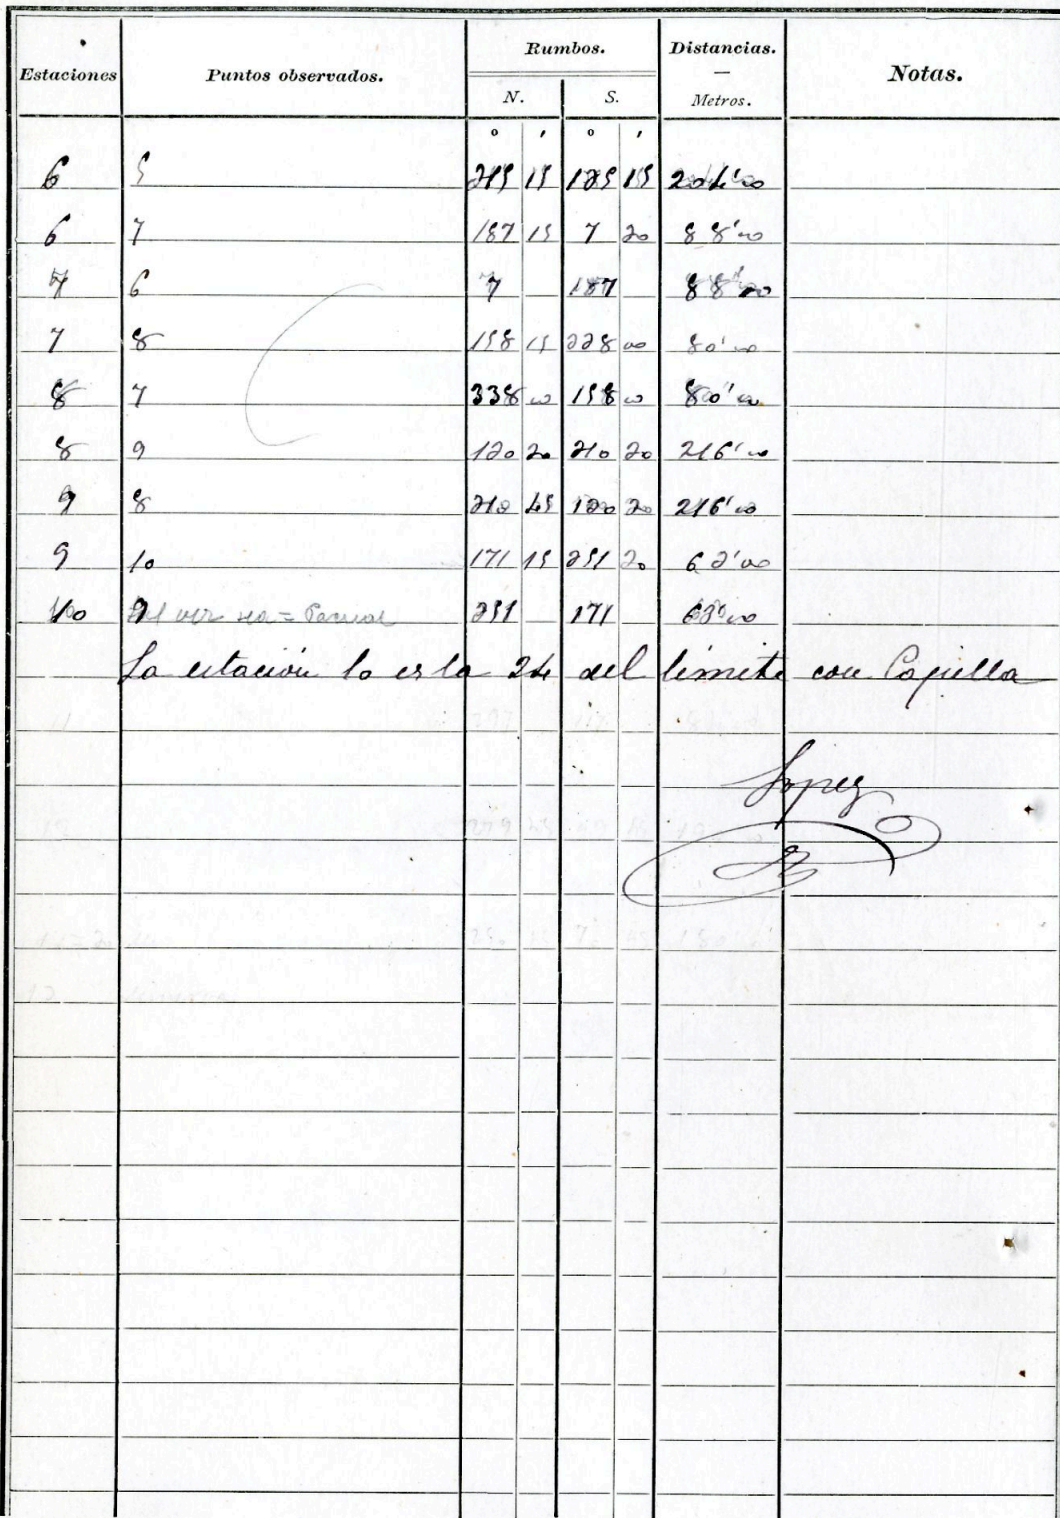 Estaciones Puntos observados. Rumbos. Distancias. — Metros. Notas.
N. S.
° ' ° '
6 5 15 15 204'00
6 7 187 15 7 20 88'00
7 6 7 187 88'00
7 8 158 15 228 00 80'00
8 7 338 00 158 00 80'00
8 9 120 20 210 20 216'00
9 8 210 45 120 20 216'00
9 10 171 15 251 20 62'00
10 9 251 171
La estación 10 es la 24 del límite con Capilla
Lopez